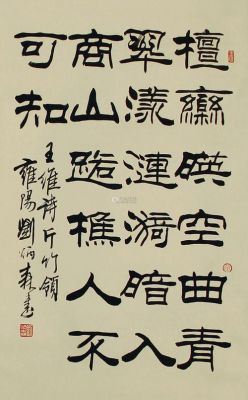 檀欒暎空曲青
翠漾漣漪暗入
商山路樵人不
可知
王維詩斤竹領
雍陽劉炳森書